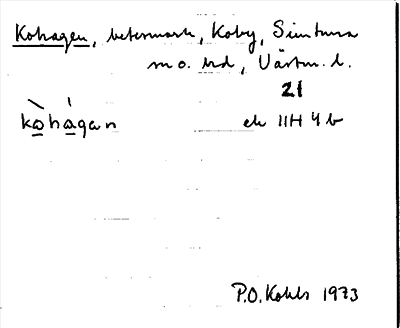 Kohagen, betesmark, Koby, Simtuna
sn o. hd, Västm. l.
21
kòhágan ek 11H 4b
P.O. Kohls 1973